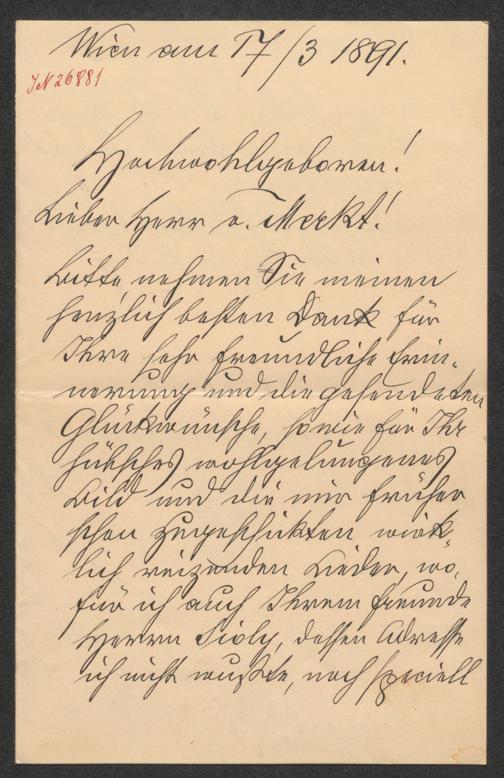 Wien am 17/3 1891.
JN 26881
Hochwohlgeboren!
Lieber Herr v. Merkt!
Bitte nehmen Sie meinen
herzlich besten Dank für
Ihre sehr freundliche Erin-
nerung und die gesendeten
Glückwünsche, sowie für Ihr
hübsches wohlgelungenes
Bild und die mir früher
schon zugeschickten wirk-
lich reizenden Lieder, wo-
für ich auch Ihrem Freunde
Herrn Sioly, dessen Adresse
ich nicht wußte, noch speciell